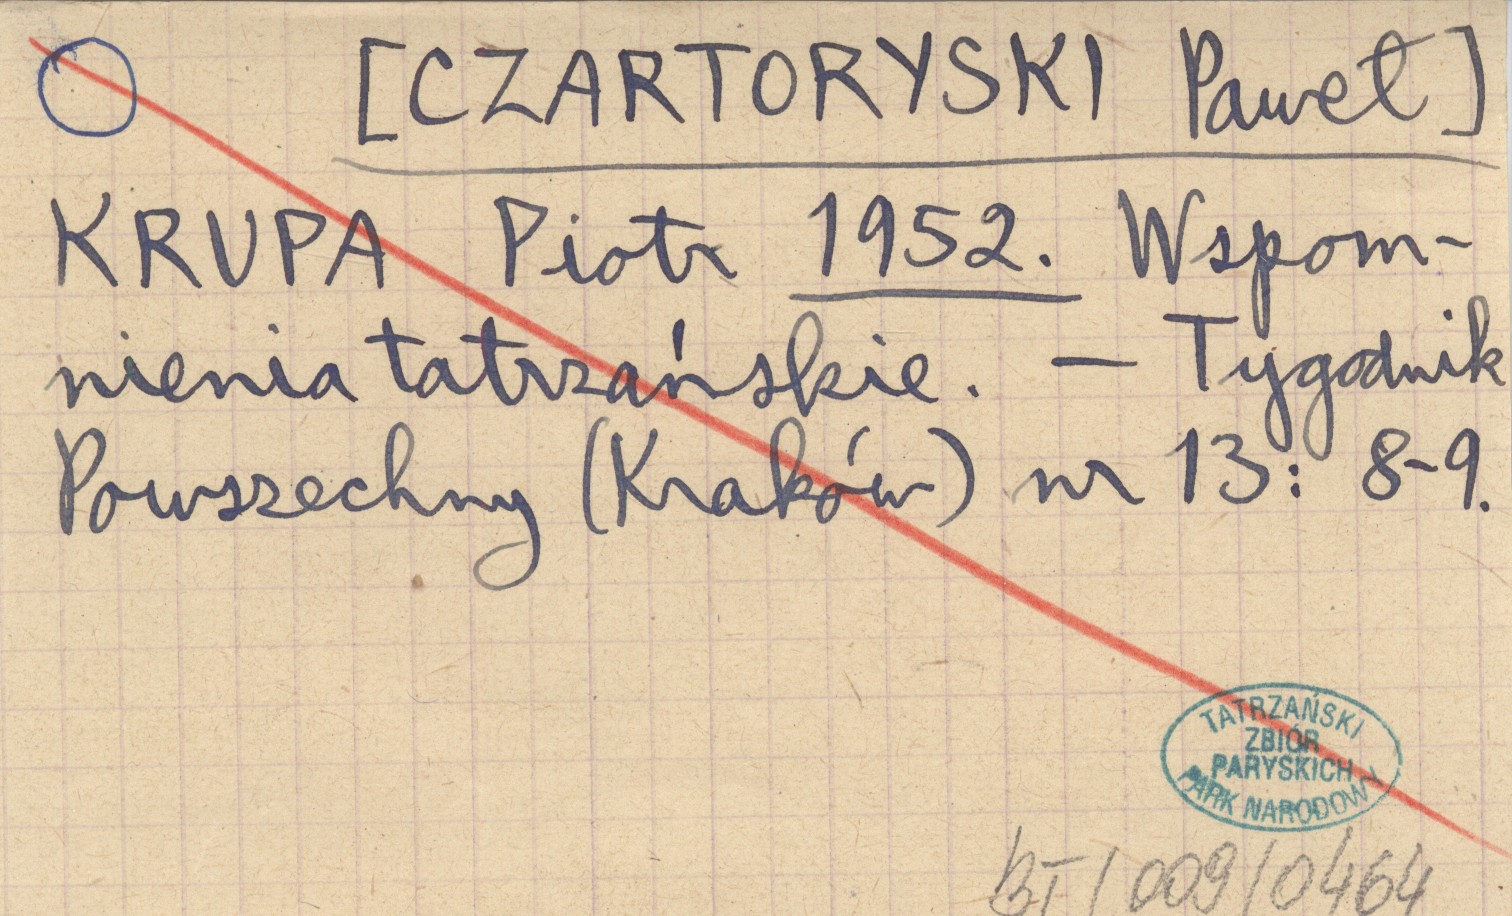 [CZARTORYSKI Paweł]
KRUPA Piotr 1952. Wspom-
nienia tatrzańskie. — Tygodnik
Powszechny (Kraków) nr 13: 8-9.
TATRZAŃSKI
ZBIÓR
PARYSKICH
PARK NARODOWY
BT/009/0464